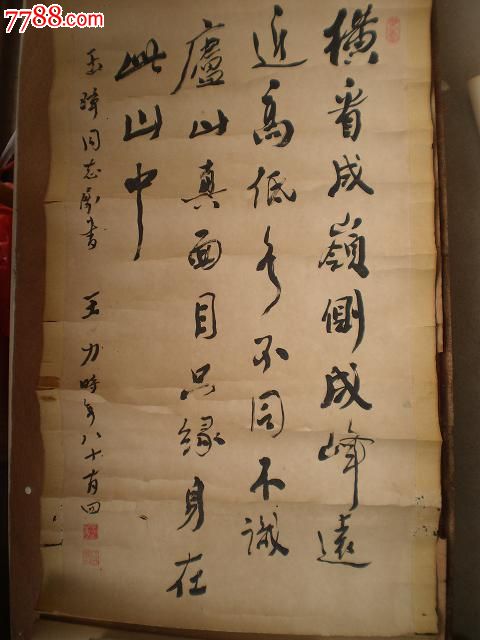 7788.com
橫看成嶺側成峰遠
近高低各不同不識
廬山真面目只緣身在
此山中
同志屬書 王力時年八十有四